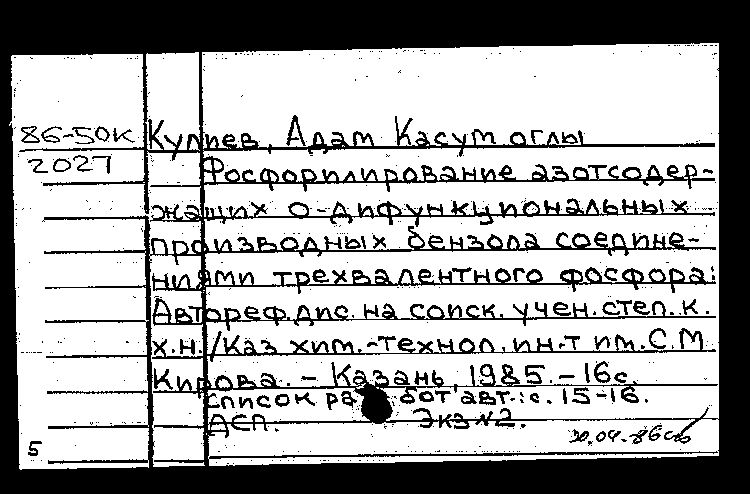 86-50К Кулиев, Адам Касум оглы
2027 Фосфорилирование азотсодер-
жащих о-дифункциональных
производных бензола соедине-
ниями трехвалентного фосфора:
Автореф.дис. на соиск. учен. степ. к.
х.н. /Каз хим.-технол. ин-т им. С.М
Кирова. – Казань, 1985. – 16с.
Список ра бот авт.: с. 15-16.
ДСП. Экз №2.
30.04.86
5